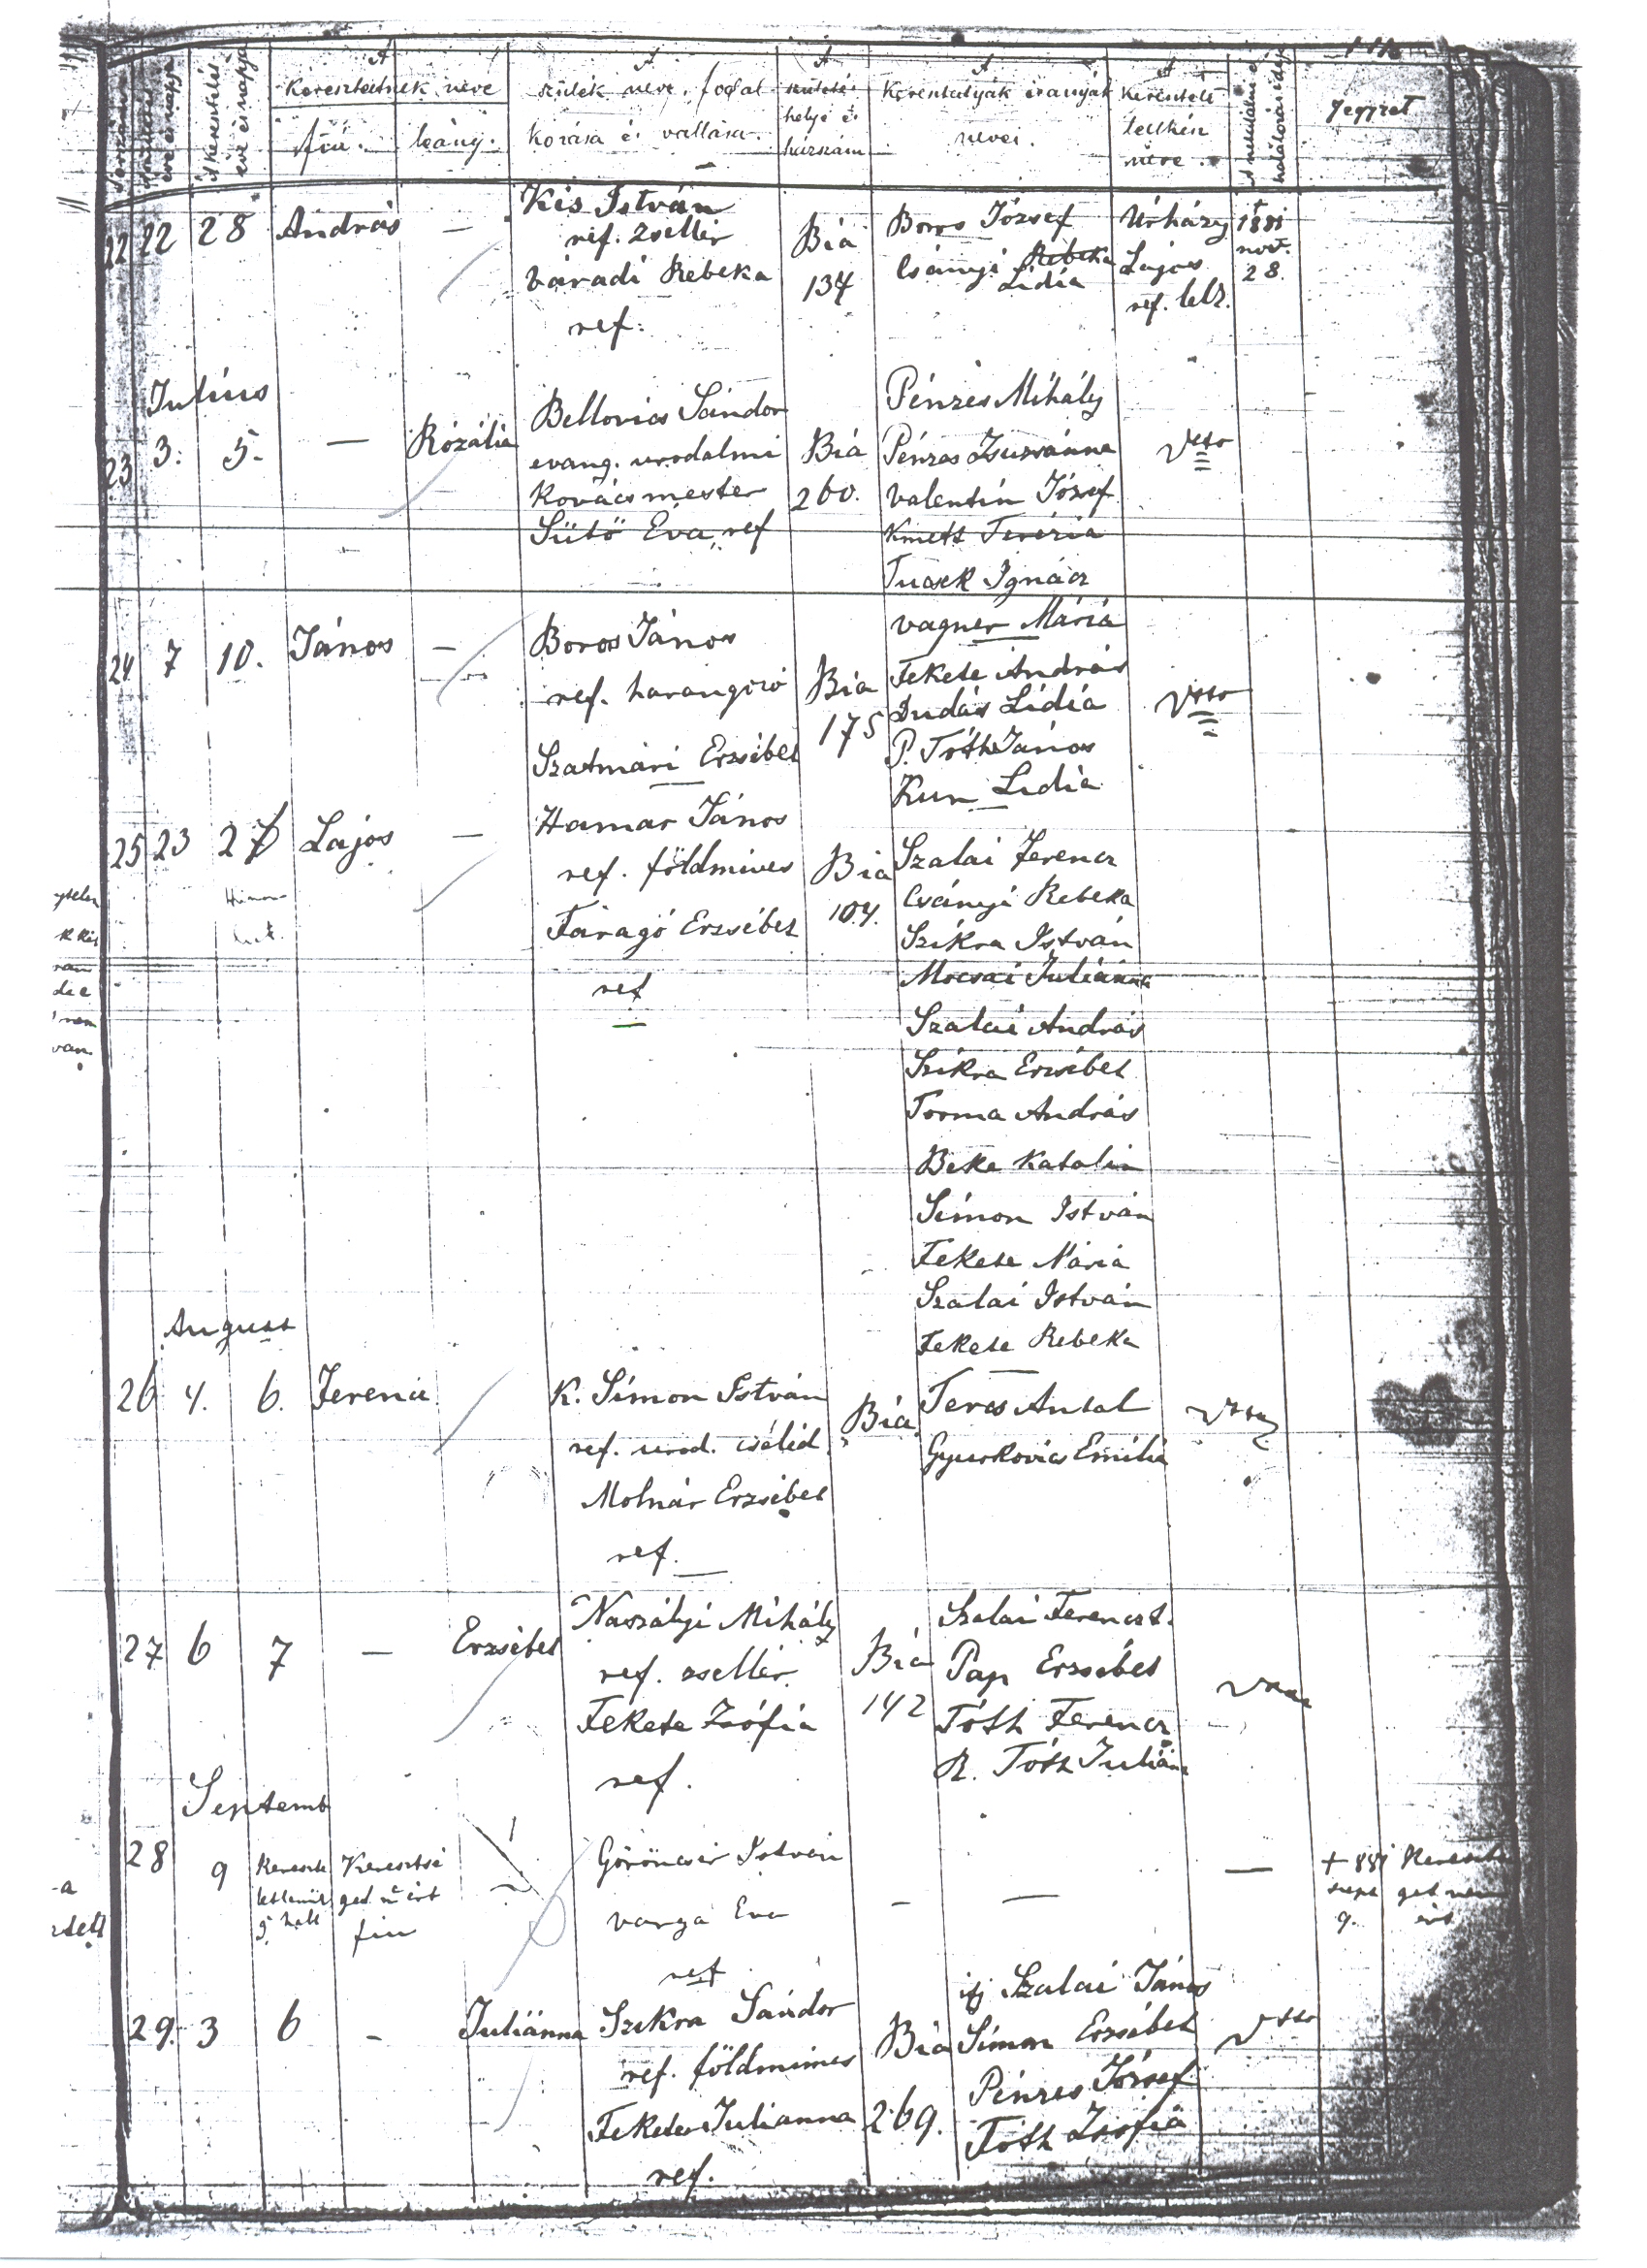 A kereszteltnek neve
fiú. leány.
A szülék neve, foglal
kozása és vallása.
A születés
helye és
házszám
A Keresztatyák és anyák
nevei.
A Keresztelő
lelkész
neve.
Jegyzet
22 22 28 András —
Kis István
ref. zsellér
Váradi Rebeka
ref:
Bia
134
Boros József
Csányi Rebeka
Lidia
Úrházy
Lajos
ref. lelk.
† 1881
nov.
28.
Július
23 3. 5. — Rózália
Bellovics Sándor
evang. urodalmi
Kovácsmester
Sütő Éva, ref
Bia
260.
Pénzes Mihály
Pénzes Zsuzsánna
Valentin József
Kmett Terézia
Tucsek Ignácz
Vagner Mária
24 7 10. János —
Boros János
ref. harangozó
Szatmári Erzsébet
Bia
175
Fekete András
Dudás Lidia
P. Tóth János
Kun Lidia
25 23 27 Lajos —
Hamar János
ref. földmives
Faragó Erzsébet
ref
Bia
104.
Szalai Ferencz
Csányi Rebeka
Szikra István
Mocsai Juliánna
Szalai András
Szikra Erzsébet
Torma András
Beke Katalin
Simon István
Fekete Mária
Szalai István
Fekete Rebeka
August
26 4. 6. Ferencz
K. Simon István
ref. urod. cseléd
Molnár Erzsébet
ref.
Bia
Teres Antal
Gyurkovics Emilia
27 6 7 — Erzsébet
Naszályi Mihály
ref. zsellér
Fekete Zsófia
ref.
Bia
142
Szalai Ferencz t.
Pap Erzsébet
Tóth Ferencz
R. Tóth Julián
Septemb
28 9
Keresztsé
get n ért
fiu
Göröncsér István
Varga Eva
ref
— — —
† 881
sept
9.
Kereszts
get nem
ért
29. 3 6 - Juliánna
Szikra Sándor
ref. földmives
Fekete Julianna
ref.
Bia
269.
ifj Szalai János
Simon Erzsébet
Pénzes József
Tóth Zsófia